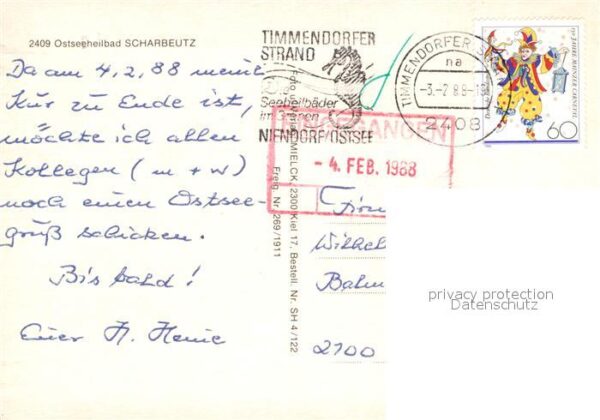 2409 Ostseeheilbad SCHARBEUTZ
Da am 4.2.88 meine
Kur zu Ende ist,
möchte ich allen
Kollegen (m + w)
noch einen Ostsee-
gruß schicken.
Bis bald!
Euer H. Heine
TIMMENDORFER
STRAND
Seeheilbäder
im Grünen
NIENDORF/OSTSEE
TIMMENDORFER
na
-3.-2.88-18
2408
60
EINGEGANGEN
- 4. FEB. 1988
MIELCK, 2300 Kiel 17, Bestell. Nr. SH 4/122
Freig. Nr. 269/1911
Firm
Wilhel
Bahn
2900
privacy protection
Datenschutz